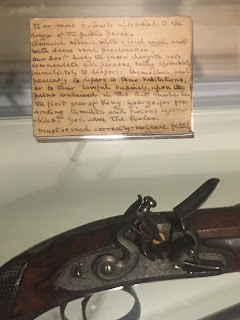 12 or more rioters assembled to the
danger of the public peace.
Command silence with a loud voice, and
with same read proclamation.
Our Sovn Lady the Queen chargeth and
commandeth all persons being assembled
immediately to disperse themselves, and
peaceably to depart to their habitations,
or to their lawful business, upon the
pains contained in the Act made in
the first year of King George, for pre-
venting tumults and riotous assem-
blies. God save the Queen.
must be read correctly: